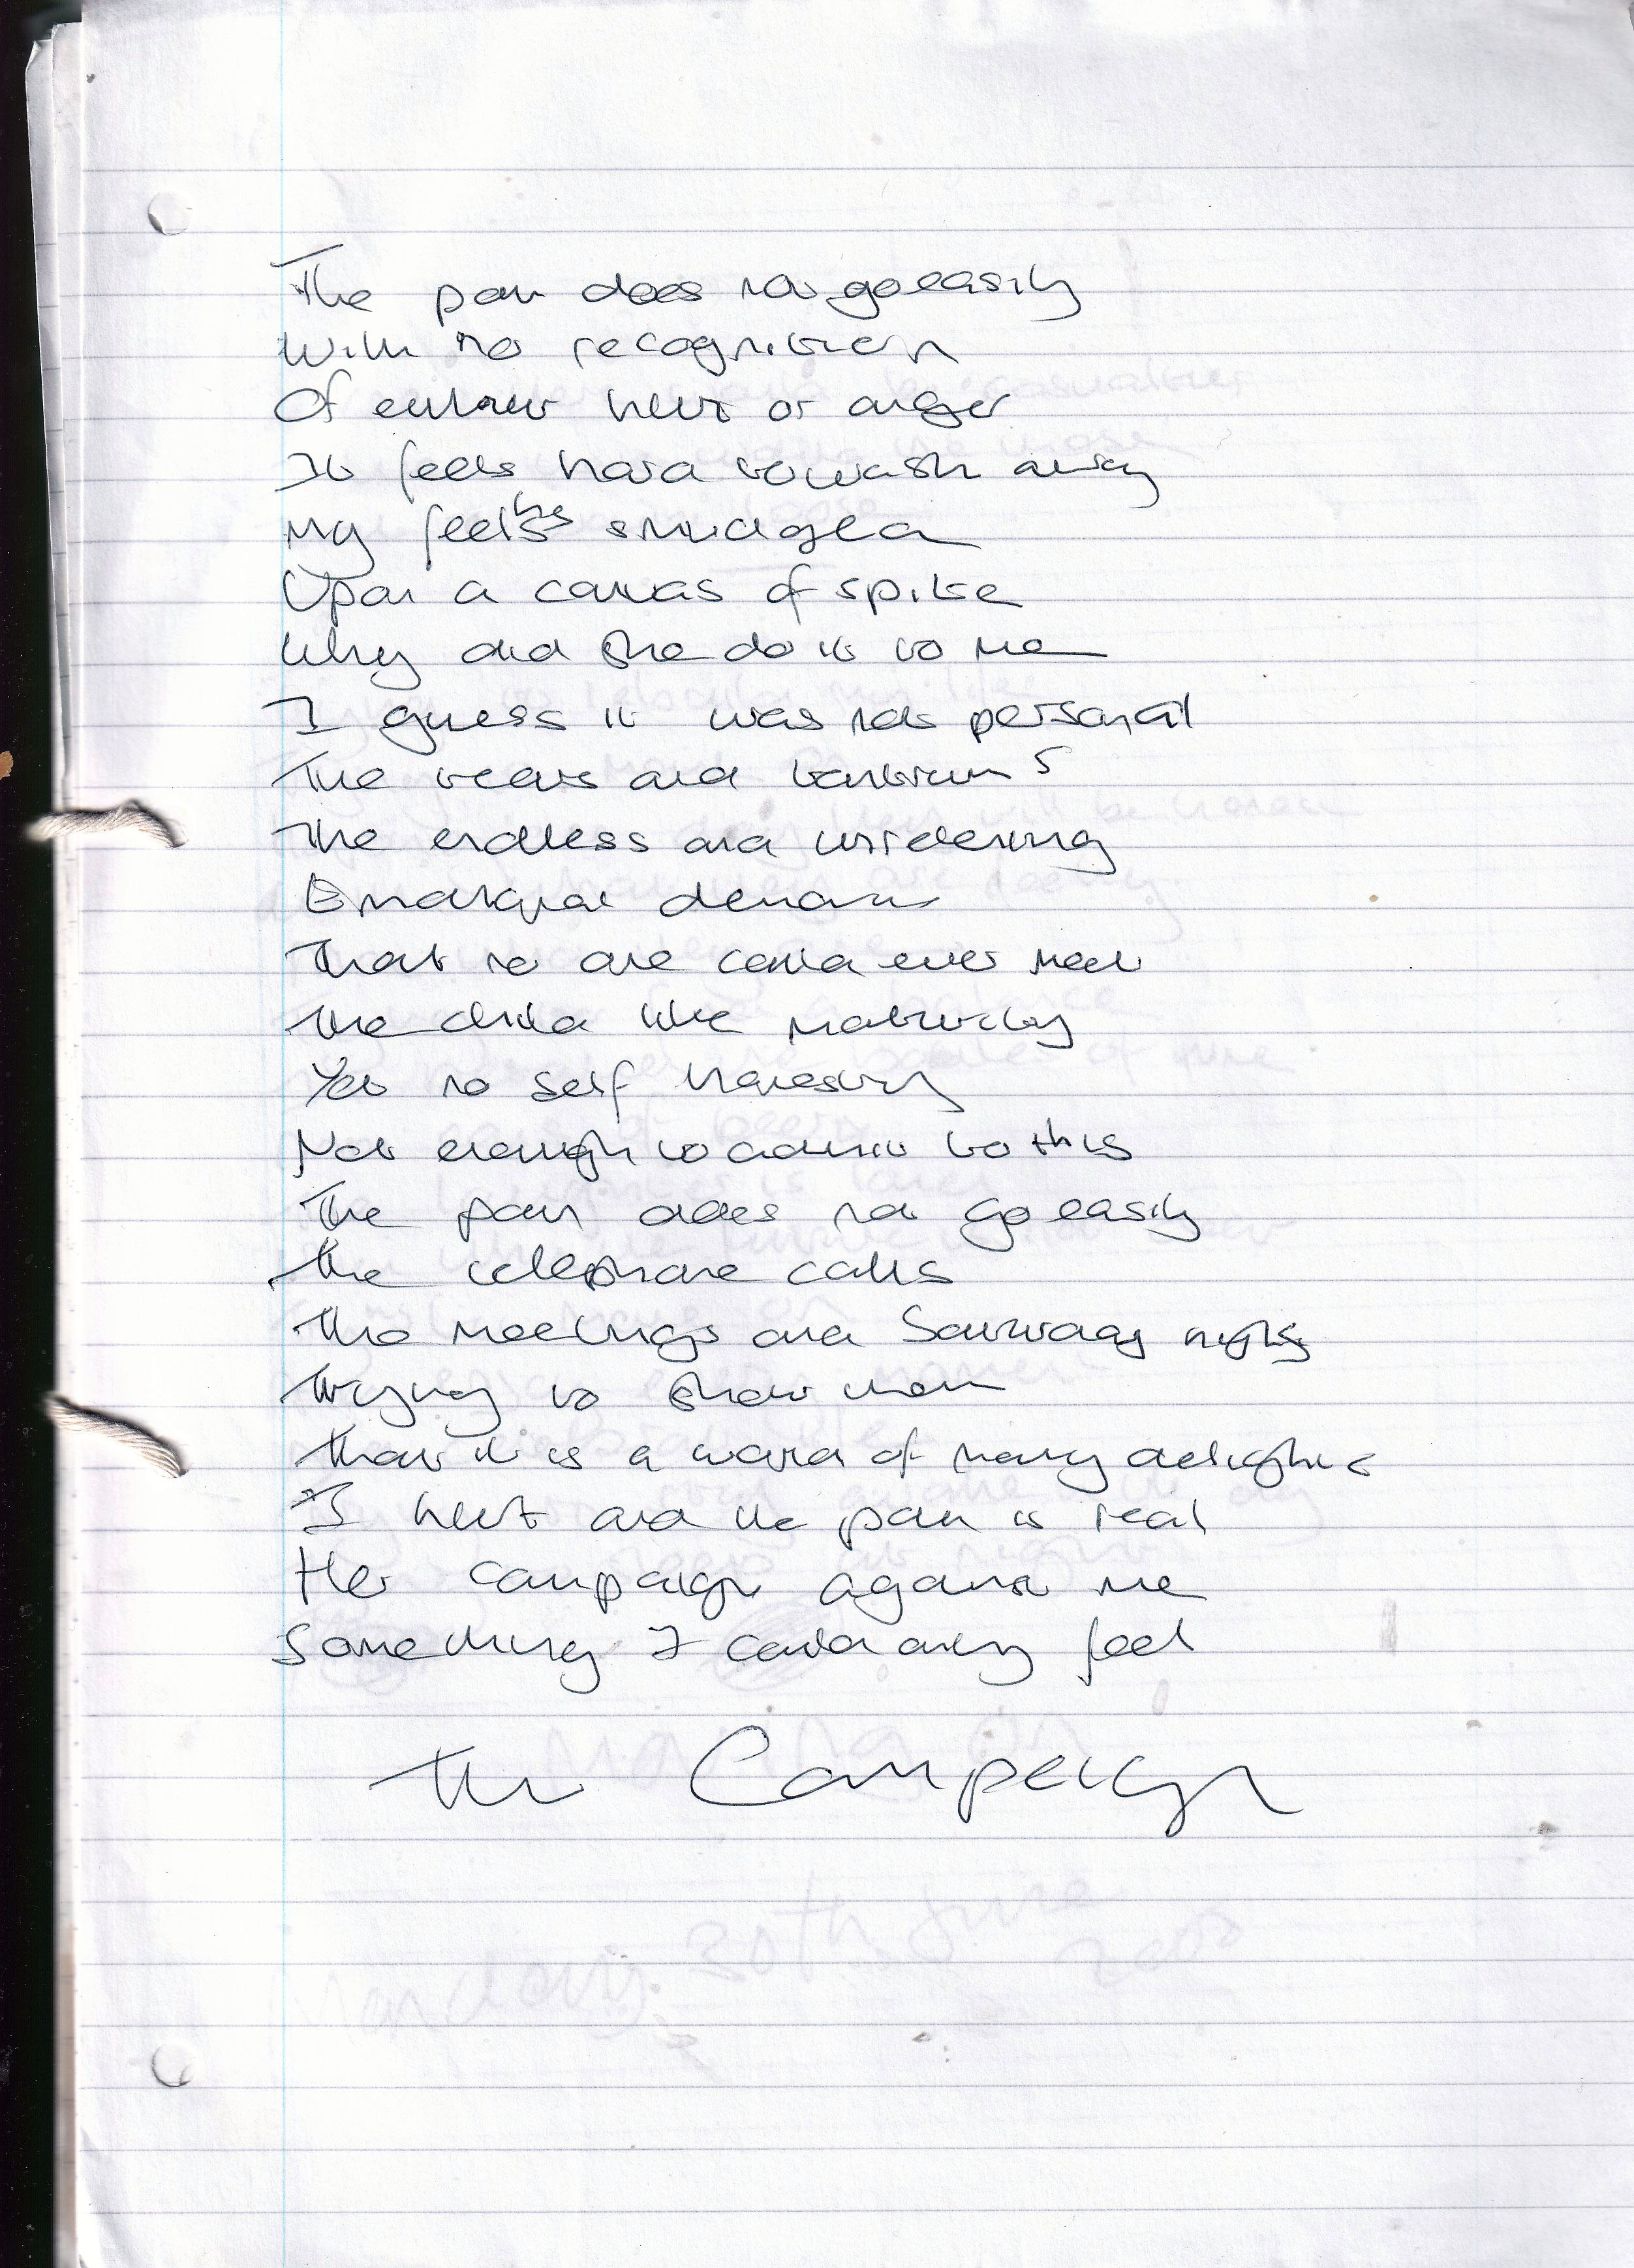 The pain does not go easily
With no recognition
Of either hurt or anger
It feels hard to wash away
My feelings smudged
Upon a canvas of spite
Why did she do it to me
I guess it was not personal
The tears and tantrums
The endless and
Emotional demands
That no one could ever meet
The child like maturity
Yet no self honesty
Not enough to admit to this
The pain does not go easily
The telephone calls
The meetings and Saturday nights
Trying to show them
That it is a world of many delights
I hurt and the pain is real
Her campaign against me
Something I could only feel
The Campaign
Monday 30th June